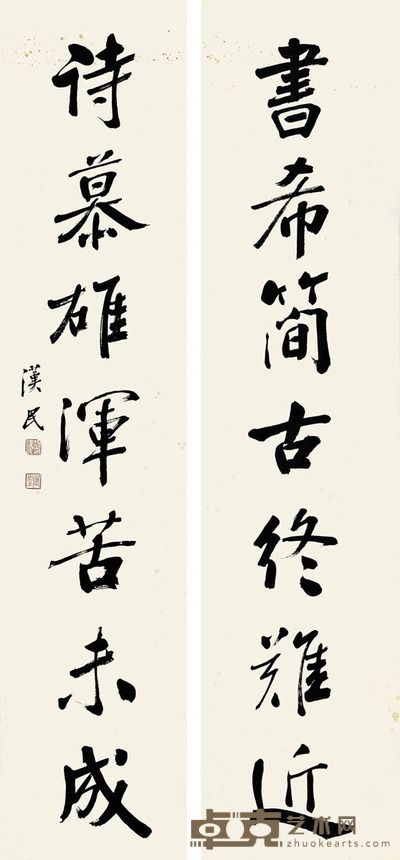 書希簡古終難近
詩慕雄渾苦未成
漢民
卓克艺术网
zhuokearts.com